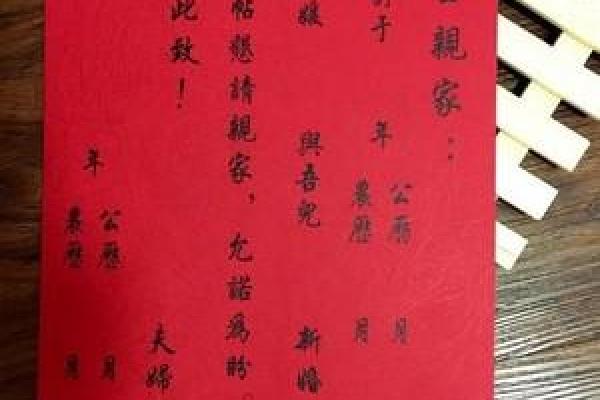 親家：
于 年 公曆 月
農曆 月
媛 與吾兒 新婚
帖懇請親家，允諾爲盼。
此致！ 夫婦
年 公曆 月
農曆 月